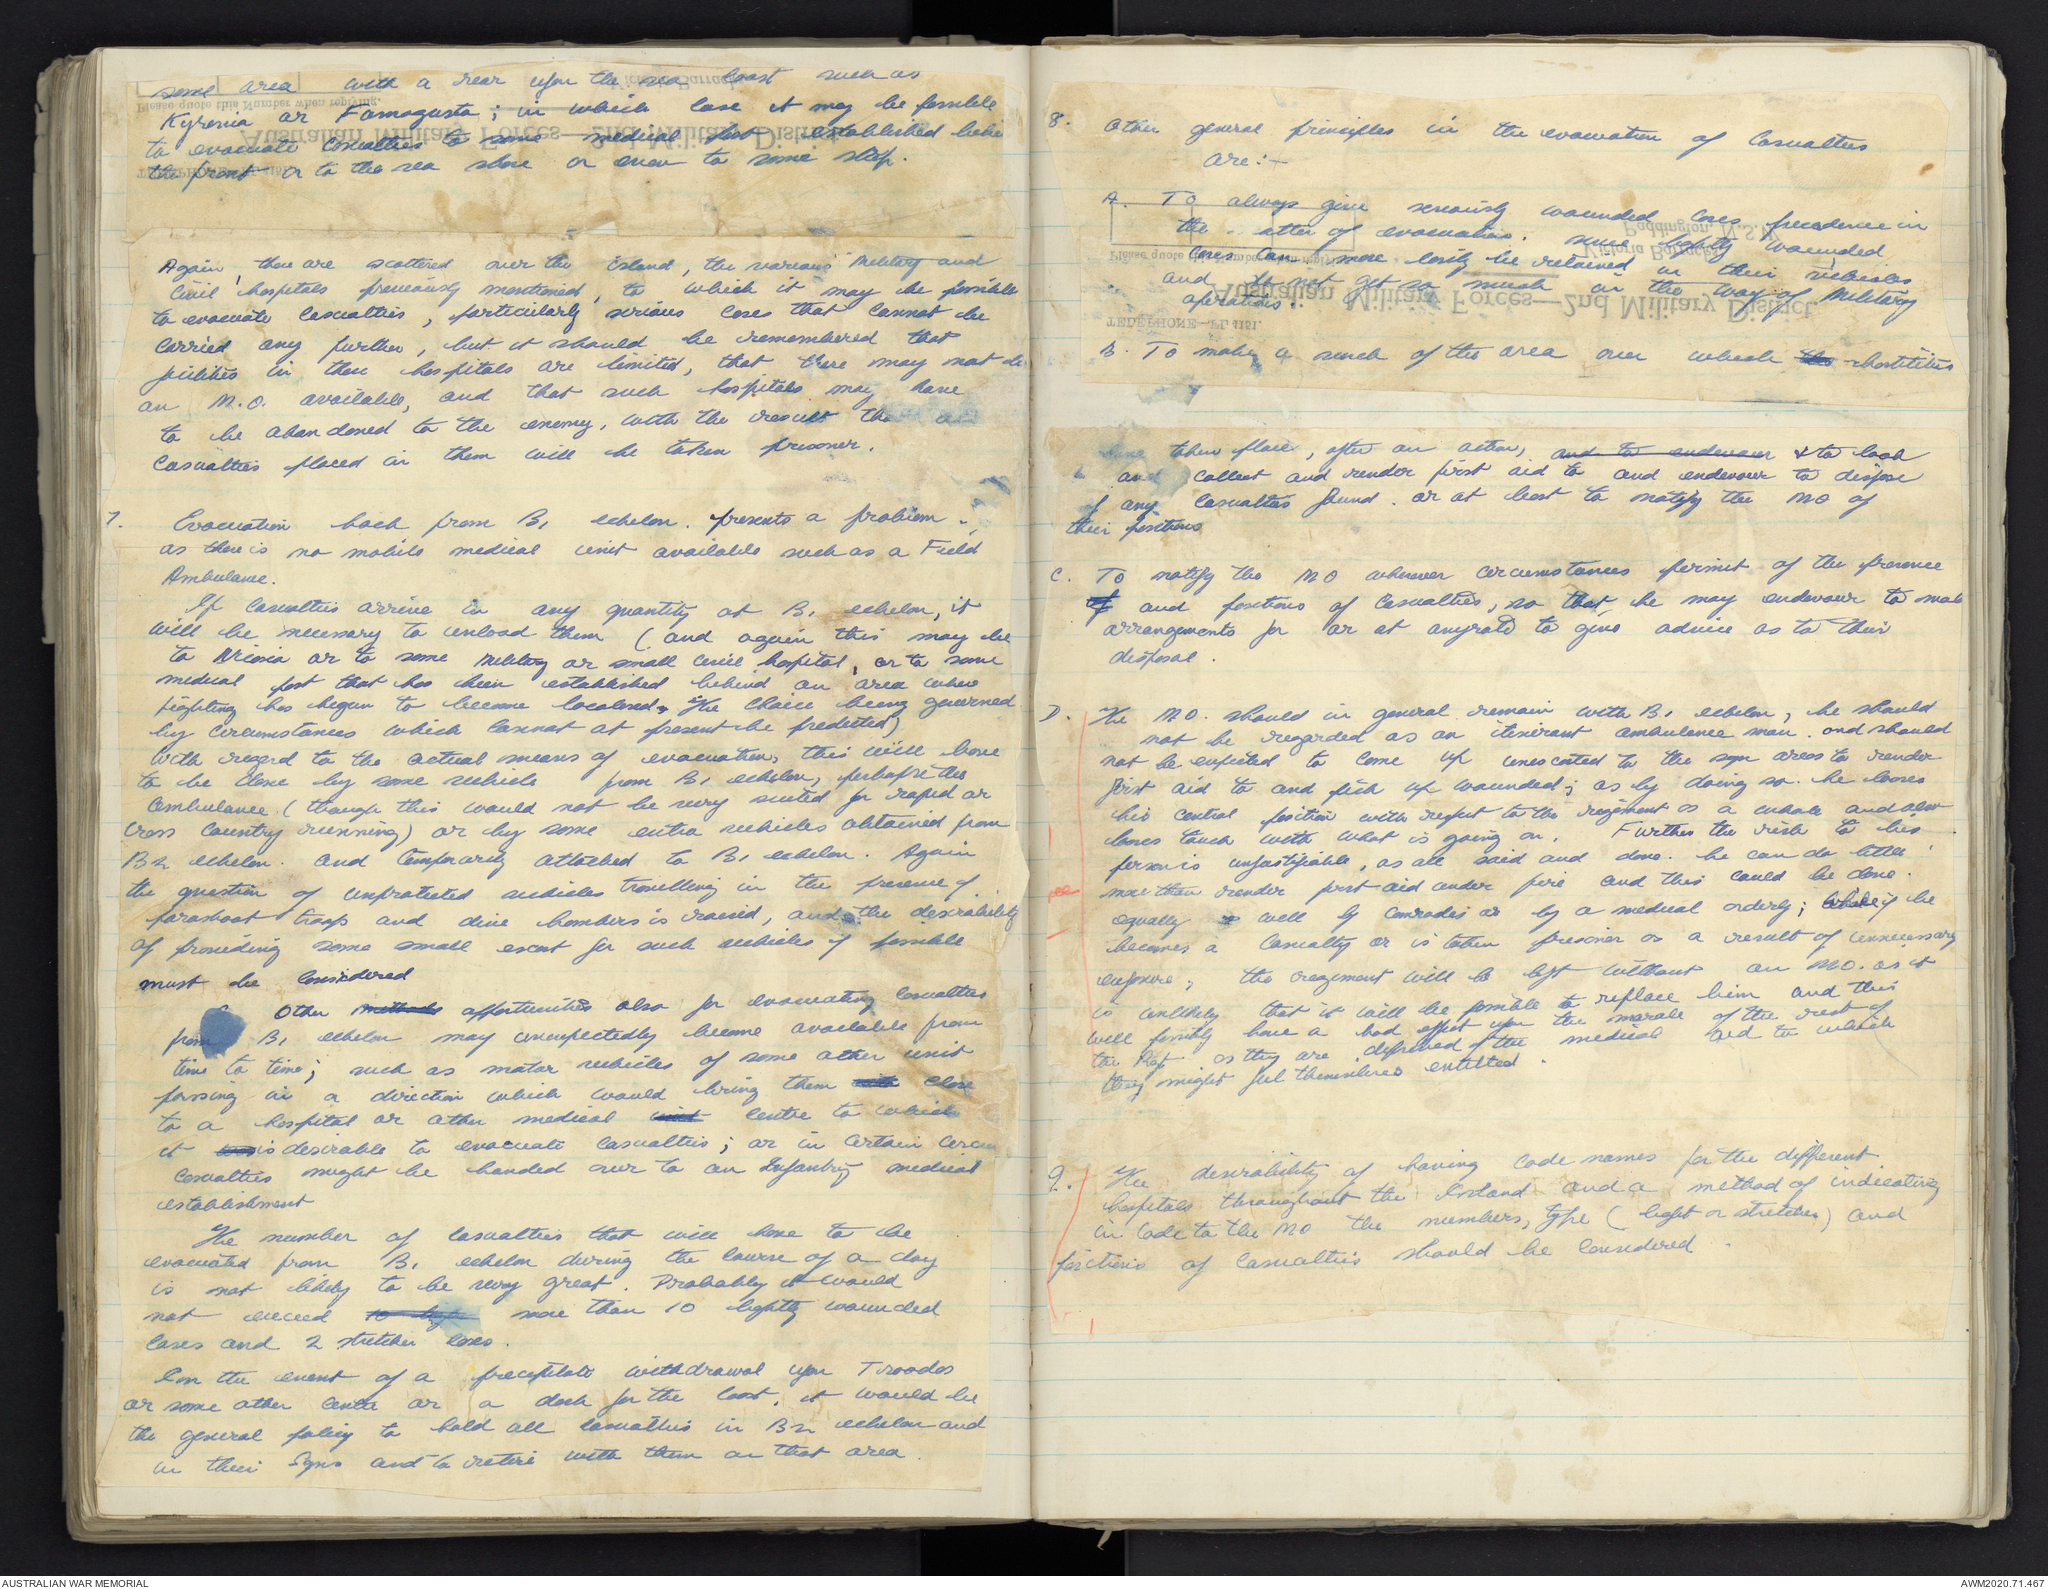 some area with a rear upon the sea coast such as
Kyrenia or Famagusta; in which case it may be possible
to evacuate casualties to some medical post established behin
the front or to the sea shore or even to some ship.
Please quote this Number when replying.
Australian Military Forces—2nd Military District
Again, there are scattered over the island, the various Military and
Civil hospitals previously mentioned, to which it may be possible
to evacuate casualties, particularly serious cases that cannot be
carried any further, but it should be remembered that
facilities in these hospitals are limited, that there may not be
an M.O. available, and that such hospitals may have
to be abandoned to the enemy, with the result tha
casualties placed in them will be taken prisoner.
7. Evacuation back from B1 echelon. presents a problem.
as there is no mobile medical unit available such as a Field
Ambulance.
If casualties arrive in any quantity at B1 echelon, it
will be necessary to unload them (and again this may be
to Nicosia or to some Military or small civil hospital, or to some
medical post that has been established behind an area where
fighting has begun to become localised, the choice being governed
by circumstances which cannot at present be predicted)
With regard to the actual means of evacuation, this will have
to be done by some vehicle from B1 echelon, perhaps the
ambulance (though this would not be very suited for rapid or
cross country running) or by some extra vehicles obtained from
B2 echelon. and temporarily attached to B1 echelon. Again
the question of unprotected vehicles travelling in the presence of
parashoot troops and dive bombers is raised, and the desirability
of providing some small escort for such vehicles if possible
must be considered
Other methods opportunities also for evacuating casualties
from B1 echelon may unexpectedly become available from
time to time; such as motor vehicles of some other unit
passing in a direction which would bring them close
to a hospital or other medical unit centre to which
it was is desirable to evacuate casualties; or in certain circum
casualties might be handed over to an Infantry medical
establishment
The number of casualties that will have to be
evacuated from B1 echelon during the course of a day
is not likely to be very great. Probably it would
not exceed more than 10 lightly wounded
cases and 2 stretcher cases.
In the event of a precipitate withdrawal upon Troodos
or some other centre or a dash for the coast, it would be
the general policy to hold all casualties in B2 echelon and
in their Sqns and to retire with them on that area.
8. Other general principles in the evacuation of Casualties
are:-
A. To always give seriously wounded cases precedence in
the matter of evacuation. since lightly wounded
cases can more easily be retained in their vehicles
and do not get so much in the way of Military
operations.
Paddington, N.S.W.
Victoria Barracks,
Please quote this Number when replying.
Australian Military Forces—2nd Military District.
TELEPHONE—FL 4151.
B. To make a search of the area over which the hostilities
have taken place, after an action, and to endeavour & to look
and collect and render first aid to and endeavour to dispose
of any casualties found. or at least to notify the MO of
their positions
C. To notify the MO whenever circumstances permit of the presence
of and positions of casualties, so that he may endeavour to mak
arrangements for or at anyrate to give advice as to their
disposal.
D. The MO. should in general remain with B1 echelon, he should
not be regarded as an itinerant ambulance man. and should
not be expected to come up unescorted to the sqn areas to render
first aid to and pick up wounded; as by doing so he looses
his central position with respect to the regiment as a whole and also
looses touch with what is going on. Further the risk to his
person is unjustifiable, as all said and done. he can do little
more than render first aid under fire and this could be done.
equally well by comrades or by a medical orderly; while if he
becomes a casualty or is taken prisoner as a result of unnecessary
exposure; the regiment will be left without an MO. as it
is unlikely that it will be possible to replace him and this
will possibly have a bad effect upon the morale of the rest of
the Regt as they are deprived of the medical aid to which
they might feel themselves entitled.
9. The desirability of having code names for the different
hospitals throughout the Island and a method of indicating
in code to the MO the numbers, type (light or stretcher) and
positions of casualties should be considered.
AUSTRALIAN WAR MEMORIAL
AWM2020.71.467